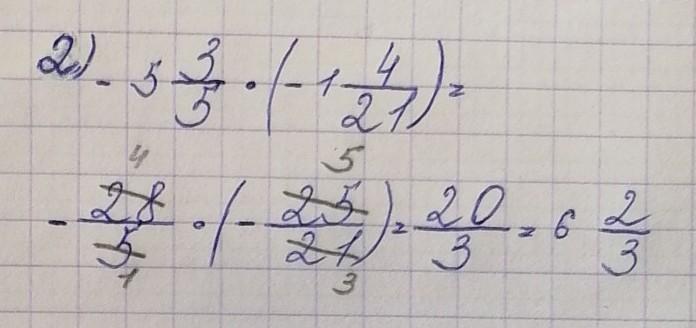 2) - 5 3/5 · (- 1 4/21) =
4 5
- 28/5 · (- 25/21) = 20/3 = 6 2/3
1 3